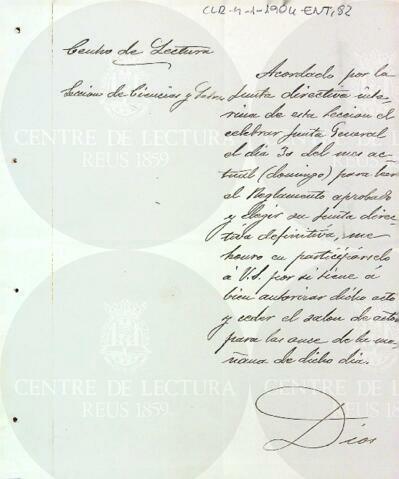 CLR-4-1-1904-ENT,82
Centro de Lectura
Seccion de Ciencias y Letras
Acordado por la
Junta directiva inte-
rina de esta seccion el
celebrar Junta General
el dia 30 del mes ac-
tual (domingo) para leer
el Reglamento aprobado
y elegir su Junta direc-
tiva definitiva, me
honro en participárselo
á V.S. por si tiene á
bien autorizar dicho acto
y ceder el salon de actos
para las once de la ma-
ñana de dicho dia.
Dios
CENTRE DE LECTURA
REUS 1859
CENTRE DE LECTURA
REUS 1859
CENTRE DE LECTURA
REUS 1859.
CENTRE DE LECTURA
REUS 1859.